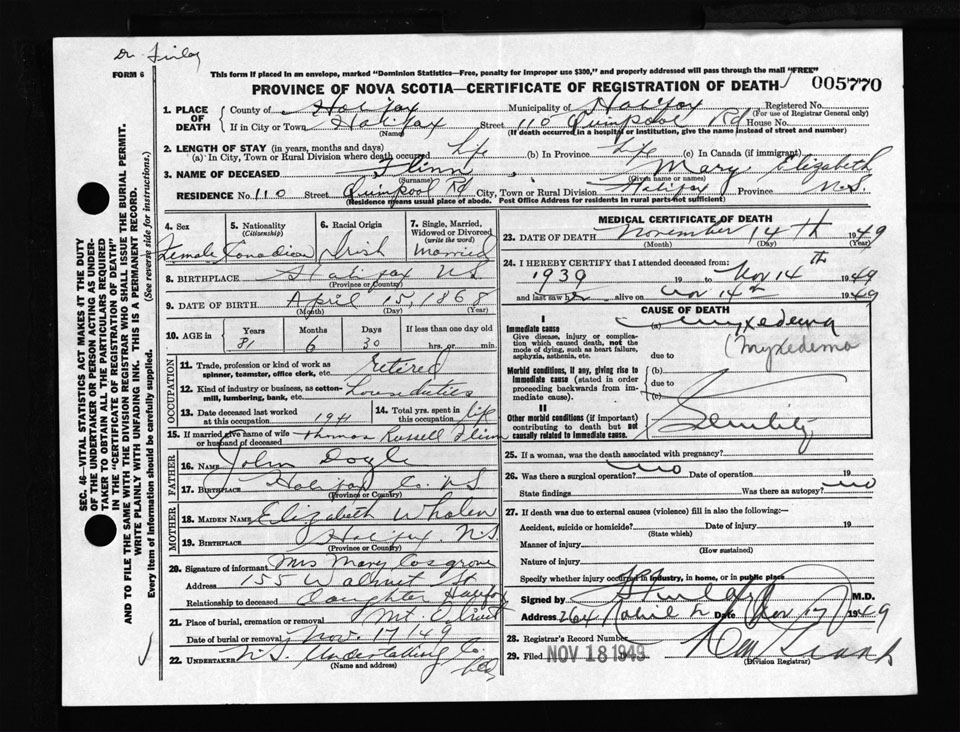 Dr. Finlay
FORM 6
This form if placed in an envelope, marked "Dominion Statistics—Free, penalty for improper use $300," and properly addressed will pass through the mail "FREE"
PROVINCE OF NOVA SCOTIA—CERTIFICATE OF REGISTRATION OF DEATH
005770
1. PLACE OF DEATH
County of Halifax Municipality of Halifax Registered No.
(For use of Registrar General only)
If in City or Town Halifax Street 110 Quinpool Rd House No.
(Name) (If death occurred in a hospital or institution, give the name instead of street and number)
2. LENGTH OF STAY (in years, months and days)
(a) In City, Town or Rural Division where death occurred life (b) In Province life (c) In Canada (if immigrant)
3. NAME OF DECEASED Flinn, Mary Elizabeth
(Surname) (Given name or names)
RESIDENCE No. 110 Street Quinpool Rd City, Town or Rural Division Halifax Province N.S.
(Residence means usual place of abode. Post Office Address for residents in rural parts not sufficient)
4. Sex Female
5. Nationality (Citizenship) Canadian
6. Racial Origin Irish
7. Single, Married, Widowed or Divorced (write the word) Married
8. BIRTHPLACE Halifax NS
(Province or Country)
9. DATE OF BIRTH April 15, 1868
(Month) (Day) (Year)
10. AGE in Years 81 Months 6 Days 30 If less than one day old hrs. or min.
OCCUPATION
11. Trade, profession or kind of work as spinner, teamster, office clerk, etc. retired
12. Kind of industry or business, as cotton-mill, lumbering, bank, etc. House duties
13. Date deceased last worked at this occupation 1941
14. Total yrs. spent in this occupation life
15. If married give name of wife or husband of deceased Thomas Russell Flinn
FATHER
16. NAME John Doyle
17. BIRTHPLACE Halifax Co. NS
(Province or Country)
MOTHER
18. MAIDEN NAME Elizabeth Whalen
19. BIRTHPLACE Halifax N.S.
(Province or Country)
20. Signature of informant Mrs Mary Cosgrove
Address 155 Walnut St Halifax
Relationship to deceased daughter
21. Place of burial, cremation or removal Mt. Olivet
Date of burial or removal Nov. 17/49
22. UNDERTAKER N.S. Undertaking Co. Ltd
(Name and address)
MEDICAL CERTIFICATE OF DEATH
23. DATE OF DEATH November 14th 1949
(Month) (Day) (Year)
24. I HEREBY CERTIFY that I attended deceased from:
1939 19 to Nov 14th 1949
and last saw her alive on Nov 14th 1949
CAUSE OF DEATH
I
Immediate cause
Give disease, injury or complication which caused death, not the mode of dying, such as heart failure, asphyxia, asthenia, etc.
(a) Myxedema
(Myxedema
due to
Morbid conditions, if any, giving rise to immediate cause (stated in order proceeding backwards from immediate cause).
(b)
due to
(c)
II
Other morbid conditions (if important) contributing to death but not causally related to immediate cause.
Senility
25. If a woman, was the death associated with pregnancy?
26. Was there a surgical operation? no Date of operation 19
State findings Was there an autopsy? no
27. If death was due to external causes (violence) fill in also the following:—
Accident, suicide or homicide? Date of injury 19
(State which)
Manner of injury
(How sustained)
Nature of injury
Specify whether injury occurred in industry, in home, or in public place
Signed by Finlay M.D.
Address 264 Robie St Date Nov 17 1949
28. Registrar's Record Number
29. Filed NOV 18 1949
(Division Registrar)
SEC. 46—VITAL STATISTICS ACT MAKES IT THE DUTY
OF THE UNDERTAKER OR PERSON ACTING AS UNDER-
TAKER TO OBTAIN ALL THE PARTICULARS REQUIRED
IN THE "CERTIFICATE OF REGISTRATION OF DEATH"
AND TO FILE THE SAME WITH THE DIVISION REGISTRAR WHO SHALL ISSUE THE BURIAL PERMIT.
WRITE PLAINLY WITH UNFADING INK. THIS IS A PERMANENT RECORD.
Every item of Information should be carefully supplied. (See reverse side for instructions.)